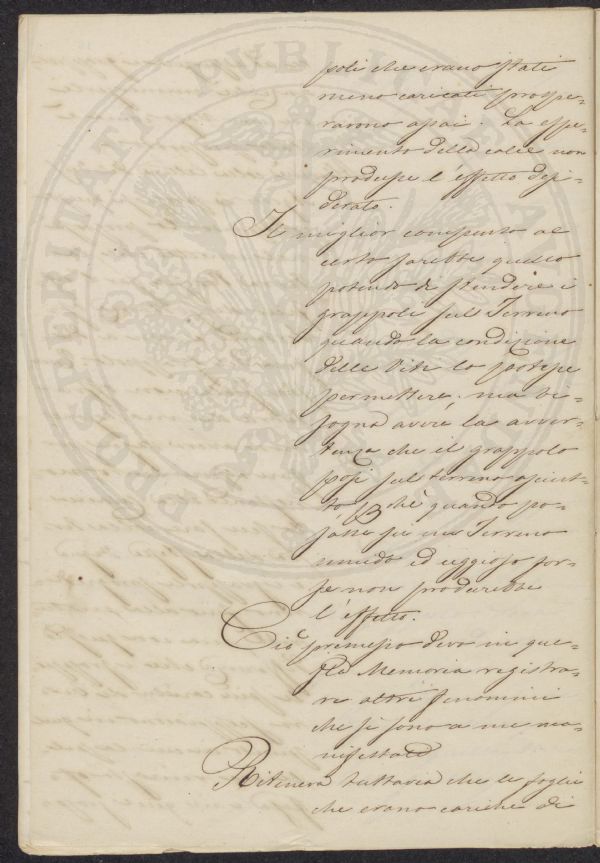 poli che erano stati
meno caricati prospe-
rarono assai. La espe-
rimento della calce non
produsse l'effetto desi-
derato.
Il miglior compenso al
certo sarebbe quello
potendo di stendere i
grappoli sul Terreno
quando la condizione
delle Viti lo potesse
permettere, ma bi-
sogna avere la avver-
tenza che il grappolo
posi sul terreno asciut-
to, perchè quando po-
sasse su un Terreno
umido ed uggioso for-
se non produrebbe
l'effetto.
Ciò premesso devo in que-
sta Memoria registra-
re altri fenomini
che si sono a me ma-
nifestati
Riteneva tuttavia che le foglie
che erano cariche di
PROSPERITATI PUBLICAE